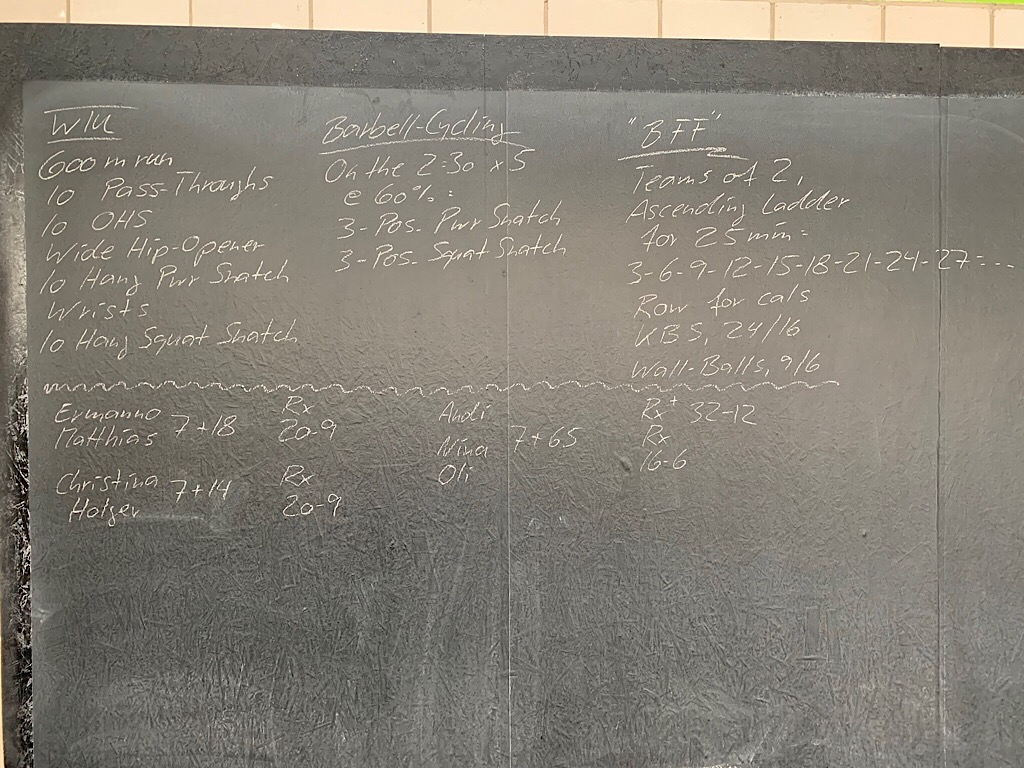 WU
600 m run
10 Pass-Throughs
10 OHS
Wide Hip-Opener
10 Hang Pwr Snatch
Wrists
10 Hang Squat Snatch
Barbell-Cycling
On the 2:30 x 5
@ 60%:
3-Pos. Pwr Snatch
3-Pos. Squat Snatch
"BFF"
Teams of 2,
Ascending Ladder
for 25 min:
3-6-9-12-15-18-21-24-27-...
Row for cals
KBS, 24/16
Wall-Balls, 9/6
Ermanno Rx
Matthias 7+18 20-9
Christina Rx
Holger 7+14 20-9
Andi Rx+ 32-12
Nina 7+65 Rx
Oli 16-6